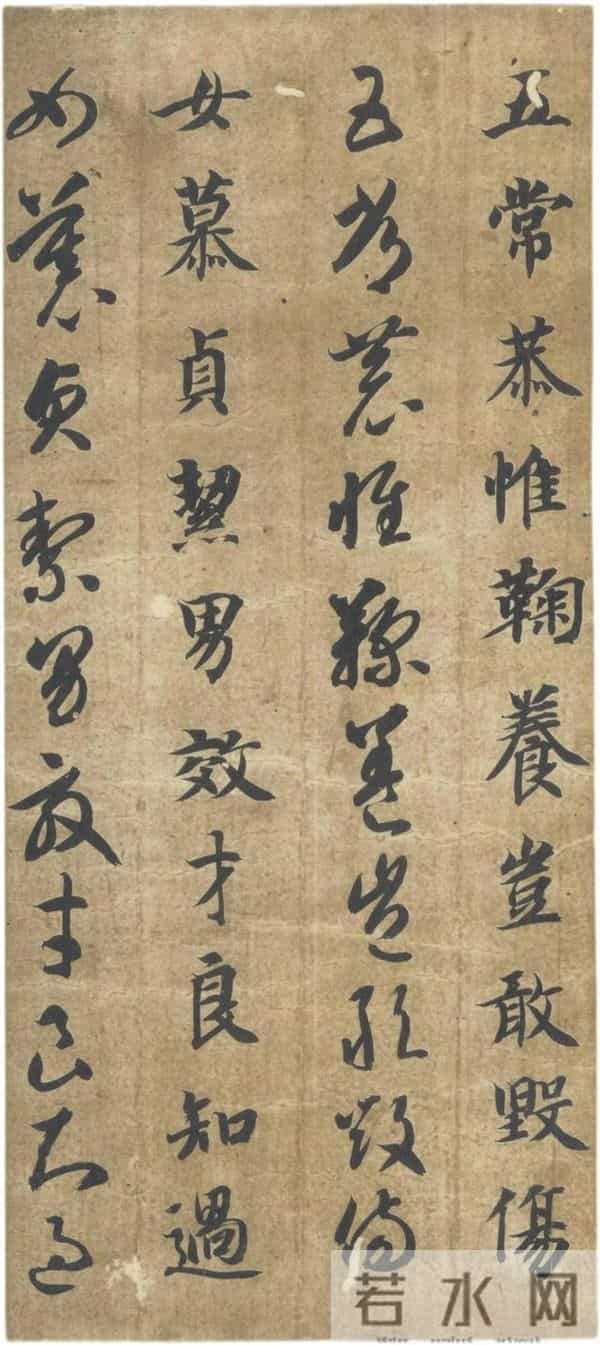 五常恭惟鞠養豈敢毀傷
五常恭惟鞠養豈敢毀傷
女慕貞絜男效才良知過
女慕貞絜男效才良知過
若水网